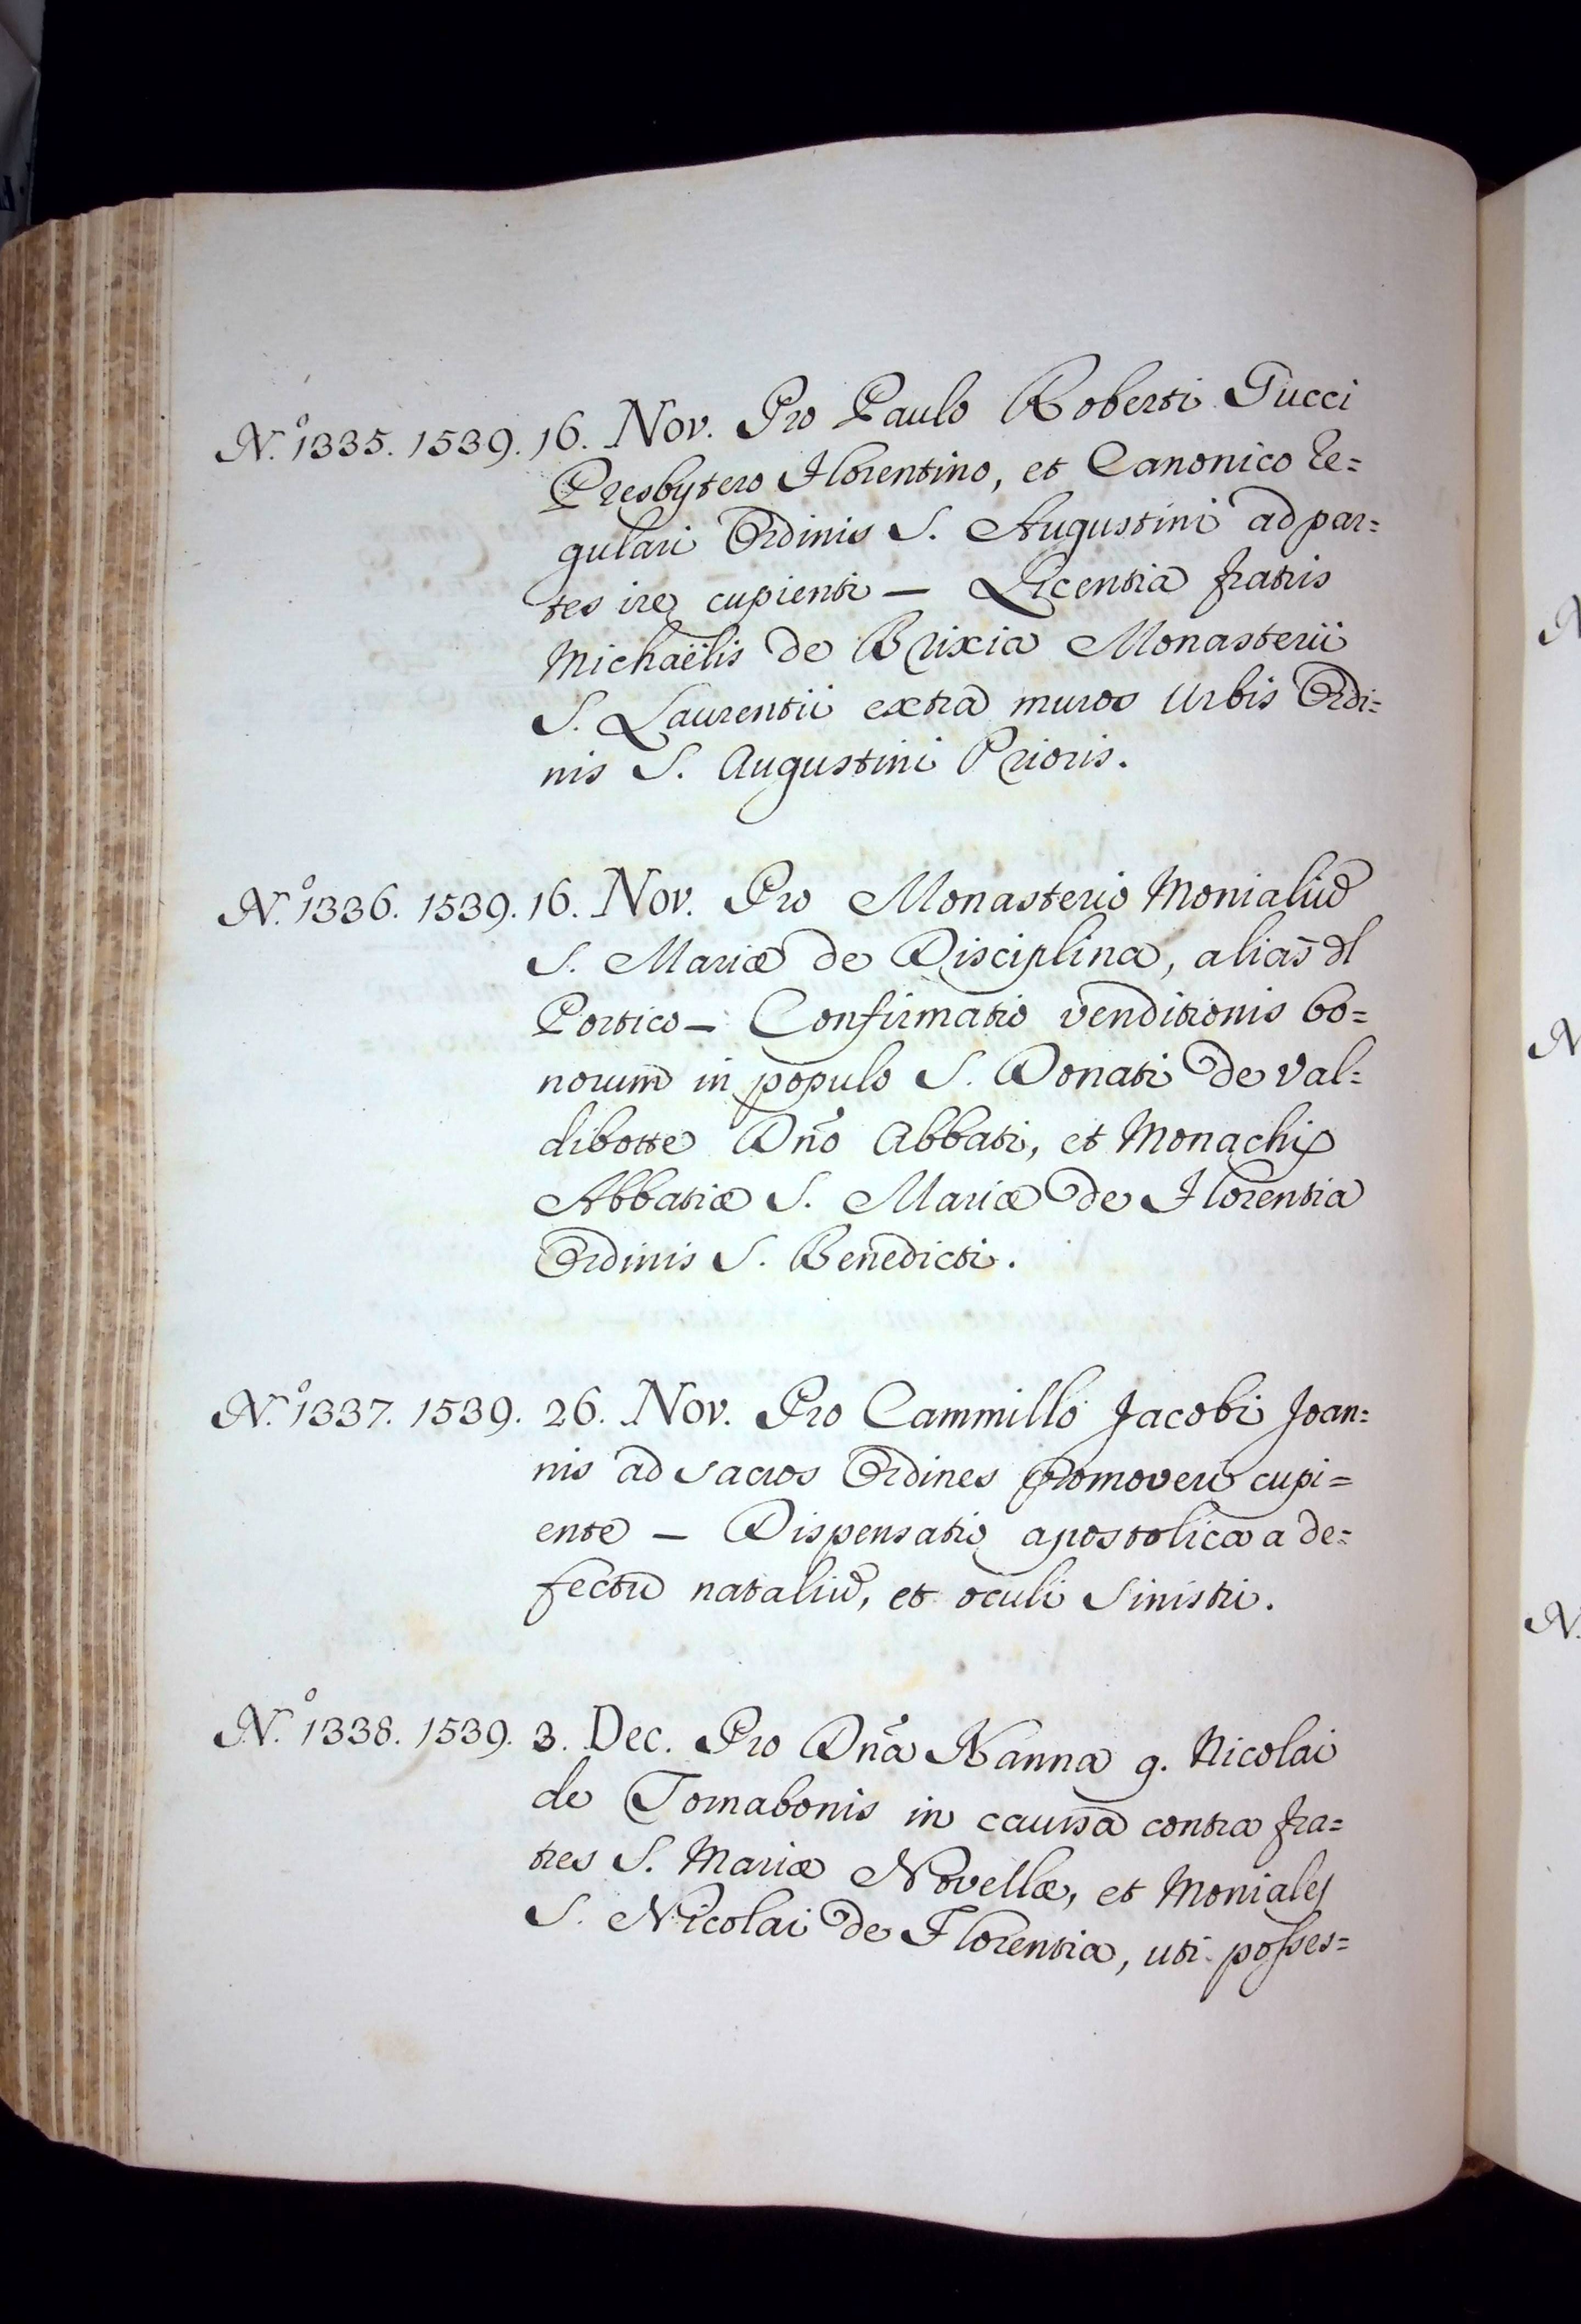 N.º 1335. 1539. 16. Nov. Pro Paulo Roberti Pucci
Presbytero Florentino, et Canonico Re=
gulari Ordinis S. Augustini ad par=
tes ire cupienti — Licentia fratris
Michaëlis de Brixia Monasterii
S. Laurentii extra muros Urbis Ordi=
nis S. Augustini Prioris.
N.º 1336. 1539. 16. Nov. Pro Monasterio Monialiu͠
S. Mariæ de Disciplina, alias dl
Portico — Confirmatio venditionis bo=
norum in populo S. Donati de Val=
dibotte Dn͠o Abbati, et Monachis
Abbatiæ S. Mariæ de Florentia
Ordinis S. Benedicti.
N.º 1337. 1539. 26. Nov. Pro Cammillo Jacobi Joan=
nis ad sacros Ordines promoveri cupi=
ente — Dispensatio apostolica a de=
fectu nataliu͠, et oculi sinistri.
N.º 1338. 1539. 3. Dec. Pro Dn͠a Nanna q. Nicolai
de Tornabonis in causa contra fra=
tres S. Mariæ Novellæ, et Moniales
S. Nicolai de Florentia, uti posses=
N
N
N.